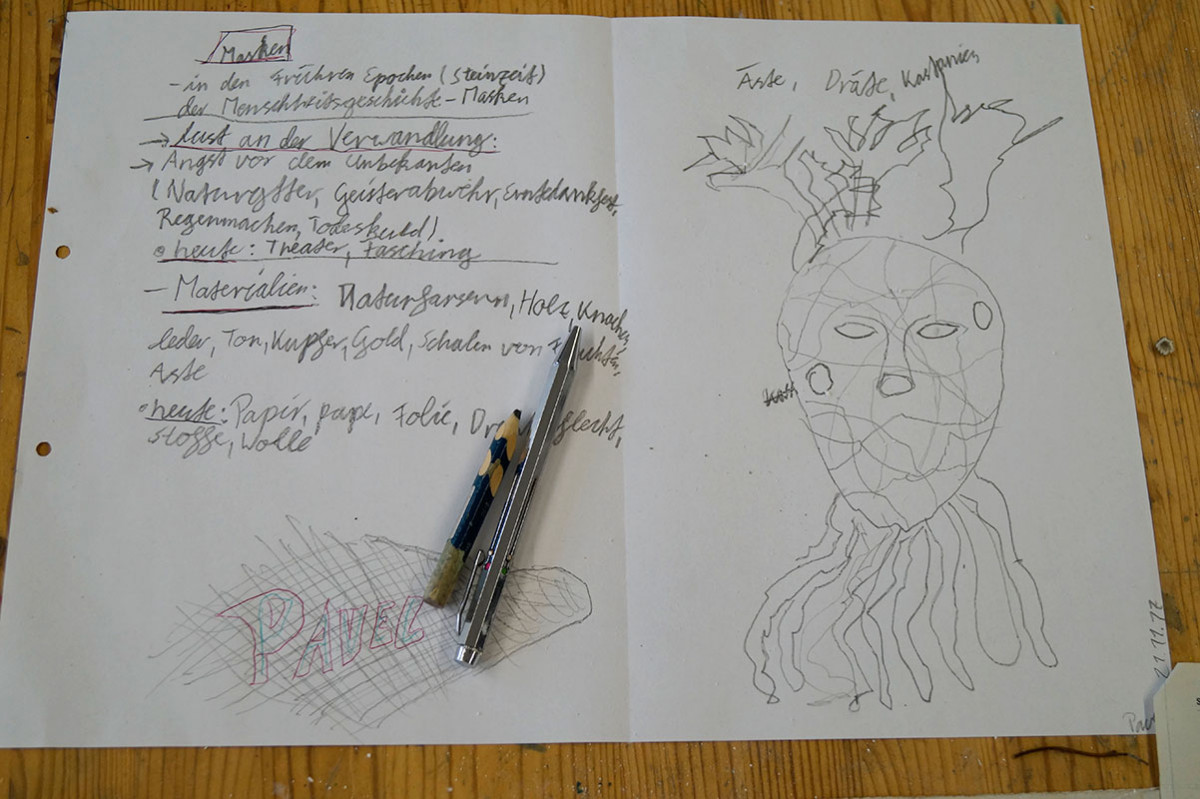 Masken
- in den Frühren Epochen (Steinzeit)
der Menschheitsgeschichte - Masken
→ Lust an der Verwandlung:
→ Angst vor dem Unbekanten
(Naturgtter, Geisterabwehr, Erntedankfest,
Regenmachen, Todeskult)
heute: Theater, Fasching
- Materialien: Naturfarsenn, Holz, Knochen,
leder, Ton, Kupfer, Gold, Schalen von
Äste
heute: Papir, pape, Folie,
Stoffe, Wolle
PAVEL
Äste, Dräte, Kastanien
21.11.17